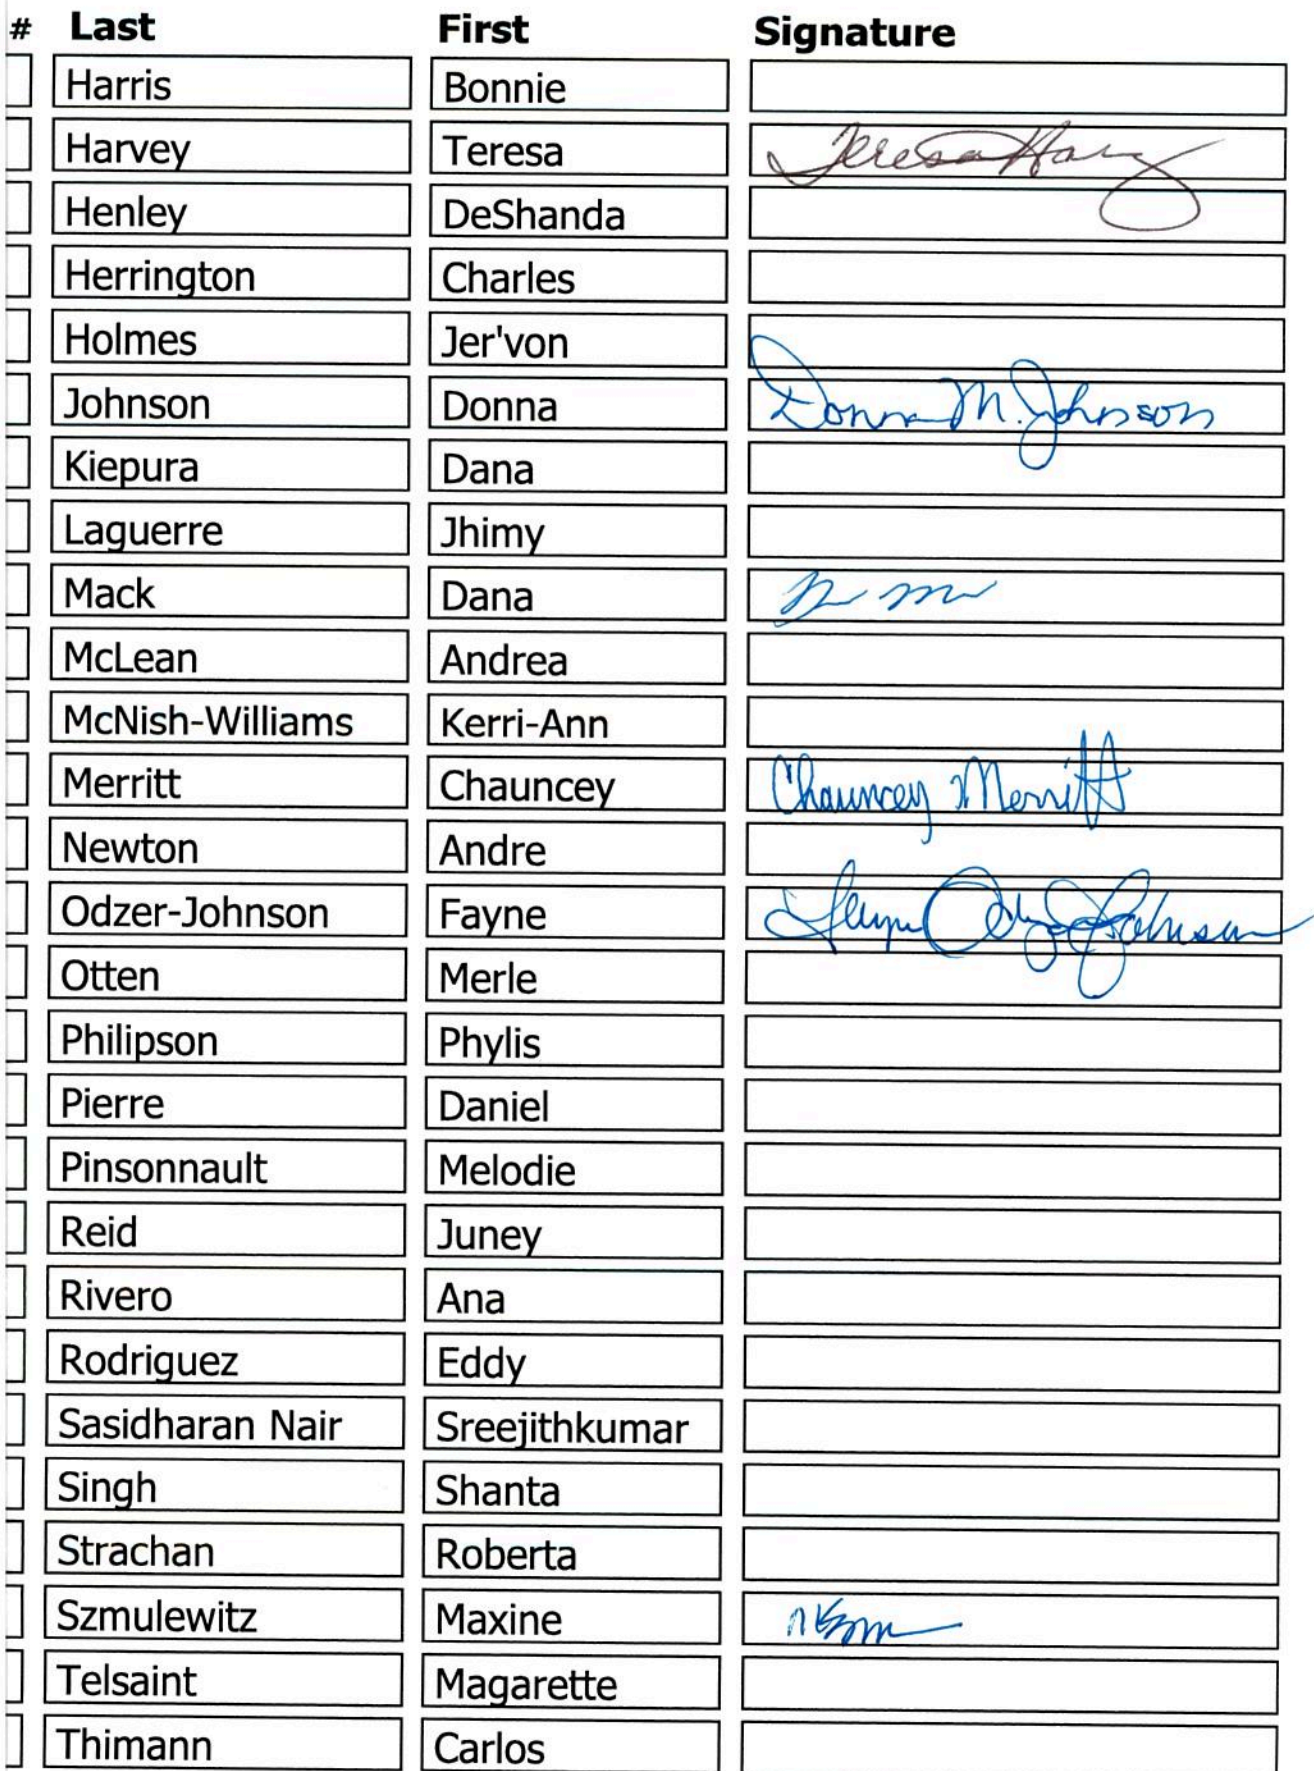 # Last First Signature
Harris Bonnie
Harvey Teresa Teresa Harvey
Henley DeShanda
Herrington Charles
Holmes Jer'von
Johnson Donna Donna M. Johnson
Kiepura Dana
Laguerre Jhimy
Mack Dana
McLean Andrea
McNish-Williams Kerri-Ann
Merritt Chauncey Chauncey Merritt
Newton Andre
Odzer-Johnson Fayne Fayne Odzer-Johnson
Otten Merle
Philipson Phylis
Pierre Daniel
Pinsonnault Melodie
Reid Juney
Rivero Ana
Rodriguez Eddy
Sasidharan Nair Sreejithkumar
Singh Shanta
Strachan Roberta
Szmulewitz Maxine
Telsaint Magarette
Thimann Carlos